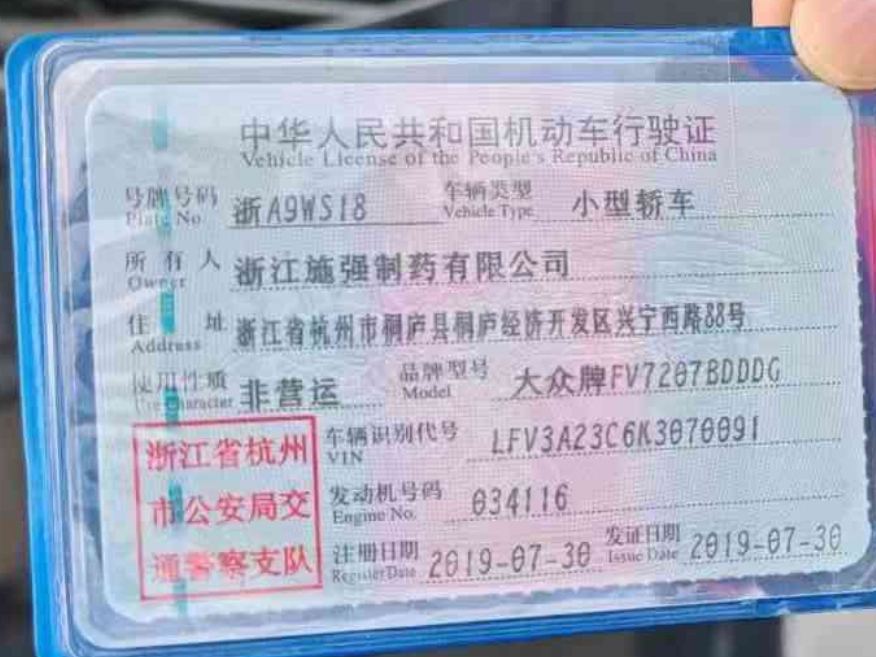 中华人民共和国机动车行驶证
Vehicle License of the People's Republic of China
号牌号码 浙A9WS18 车辆类型 小型轿车
Plate No. Vehicle Type
所有人 浙江施强制药有限公司
Owner
住址 浙江省杭州市桐庐县桐庐经济开发区兴宁西路88号
Address
使用性质 非营运 品牌型号 大众牌FV7207BDDDG
Use Character Model
车辆识别代号 LFV3A23C6K3070091
VIN
发动机号码 034116
Engine No.
注册日期 2019-07-30 发证日期 2019-07-30
Register Date Issue Date
浙江省杭州
市公安局交
通警察支队